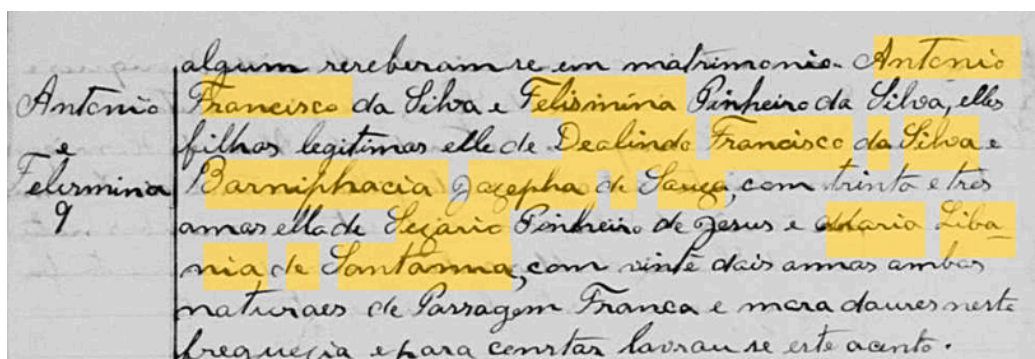 algum rereberam se em matrimonio. Antonio
Antonio
Francisco da Silva e Felismina Pinheiro da Silva, elles
e
filhos legitimos elle de Dealindo Francisco da Silva e
Felismina
Barniphacia Jozepha de Souza, com trinta e tres
9
annos ella de Sezario Pinheiro de Jesus e Maria Liba-
nia de Santanna, com vinte dois annos ambos
naturaes de Passagem Franca e moradoures neste
freguezia e para constar lavrou se este acento.